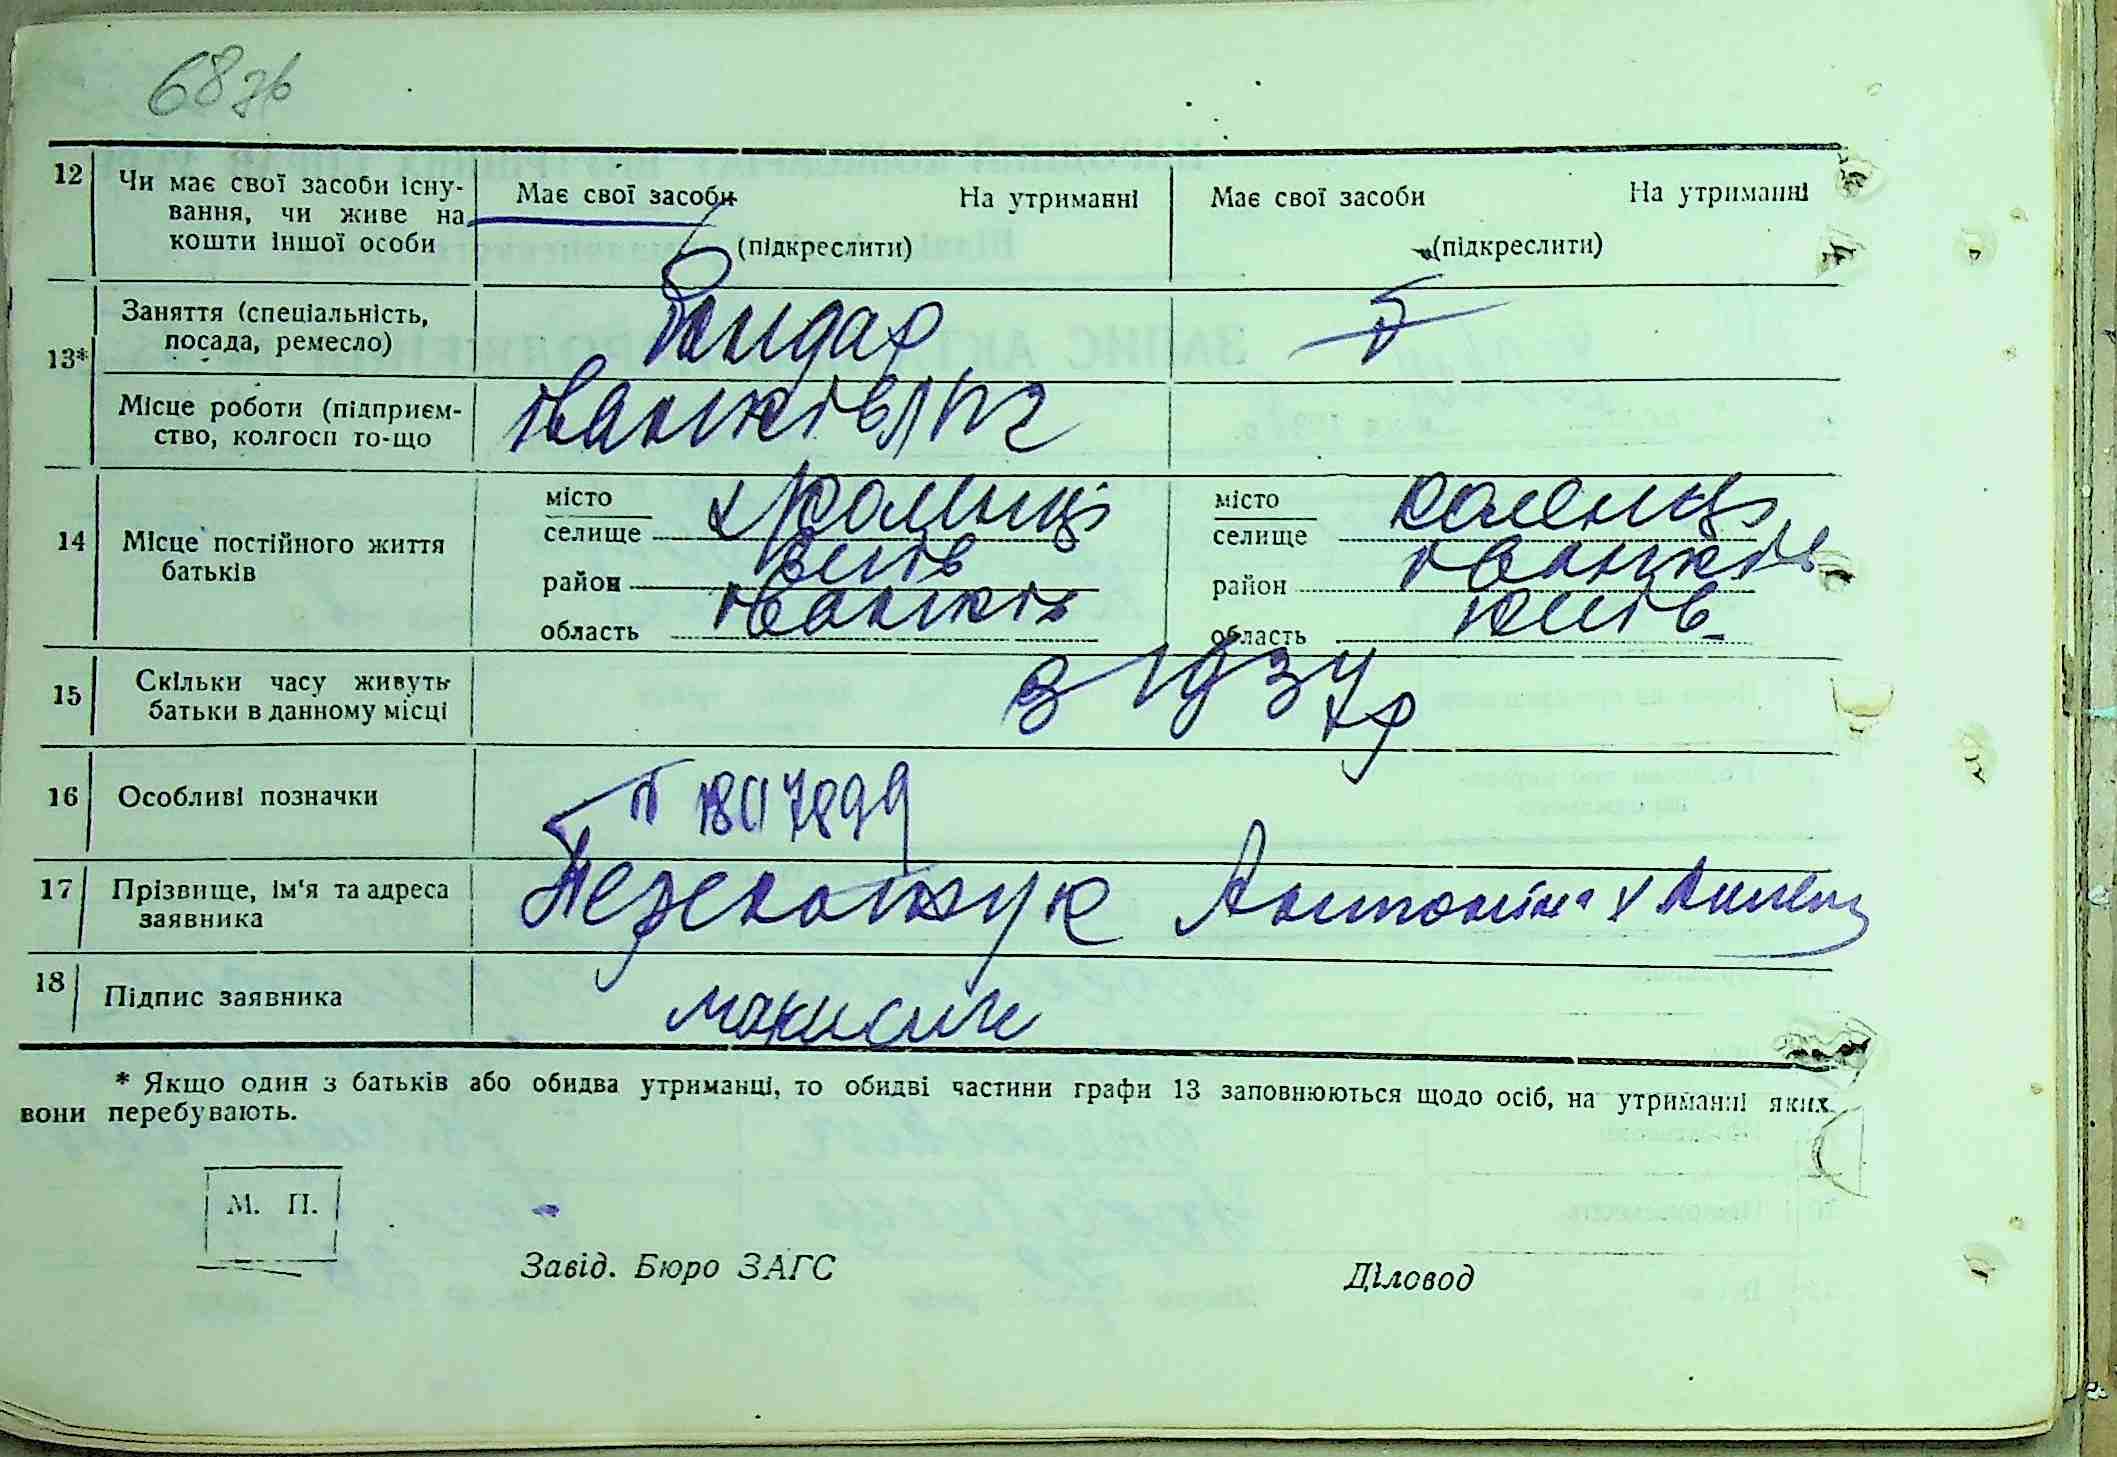 68зв
12 Чи має свої засоби існу- Має свої засоби На утриманні Має свої засоби На утриманні
вання, чи живе на
кошти іншої особи (підкреслити) (підкреслити)
Заняття (спеціальність, Бондар
13* посада, ремесло)
Місце роботи (підприєм- Іванків
ство, колгосп то-що
місто місто Коленці
селище селище
14 Місце постійного життя
батьків район Київ район Іванків
область Іванків область Київ
15 Скільки часу живуть з 1937 р
батьки в данному місці
16 Особливі позначки П 1807899
17 Прізвище, ім'я та адреса Антоніна
заявника
18 Підпис заявника
* Якщо один з батьків або обидва утриманці, то обидві частини графи 13 заповнюються щодо осіб, на утриманні яких
вони перебувають.
М. П.
Завід. Бюро ЗАГС Діловод